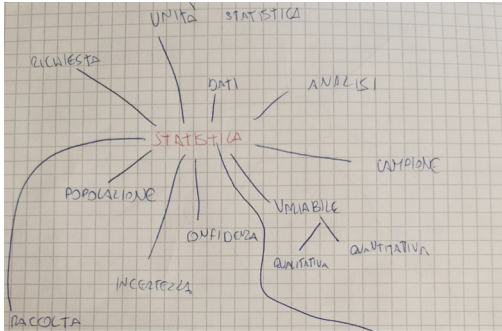 UNITÀ STATISTICA
RICHIESTA
DATI
ANALISI
STATISTICA
CAMPIONE
POPOLAZIONE
VARIABILE
CONFIDENZA
QUALITATIVA
QUANTITATIVA
INCERTEZZA
RACCOLTA